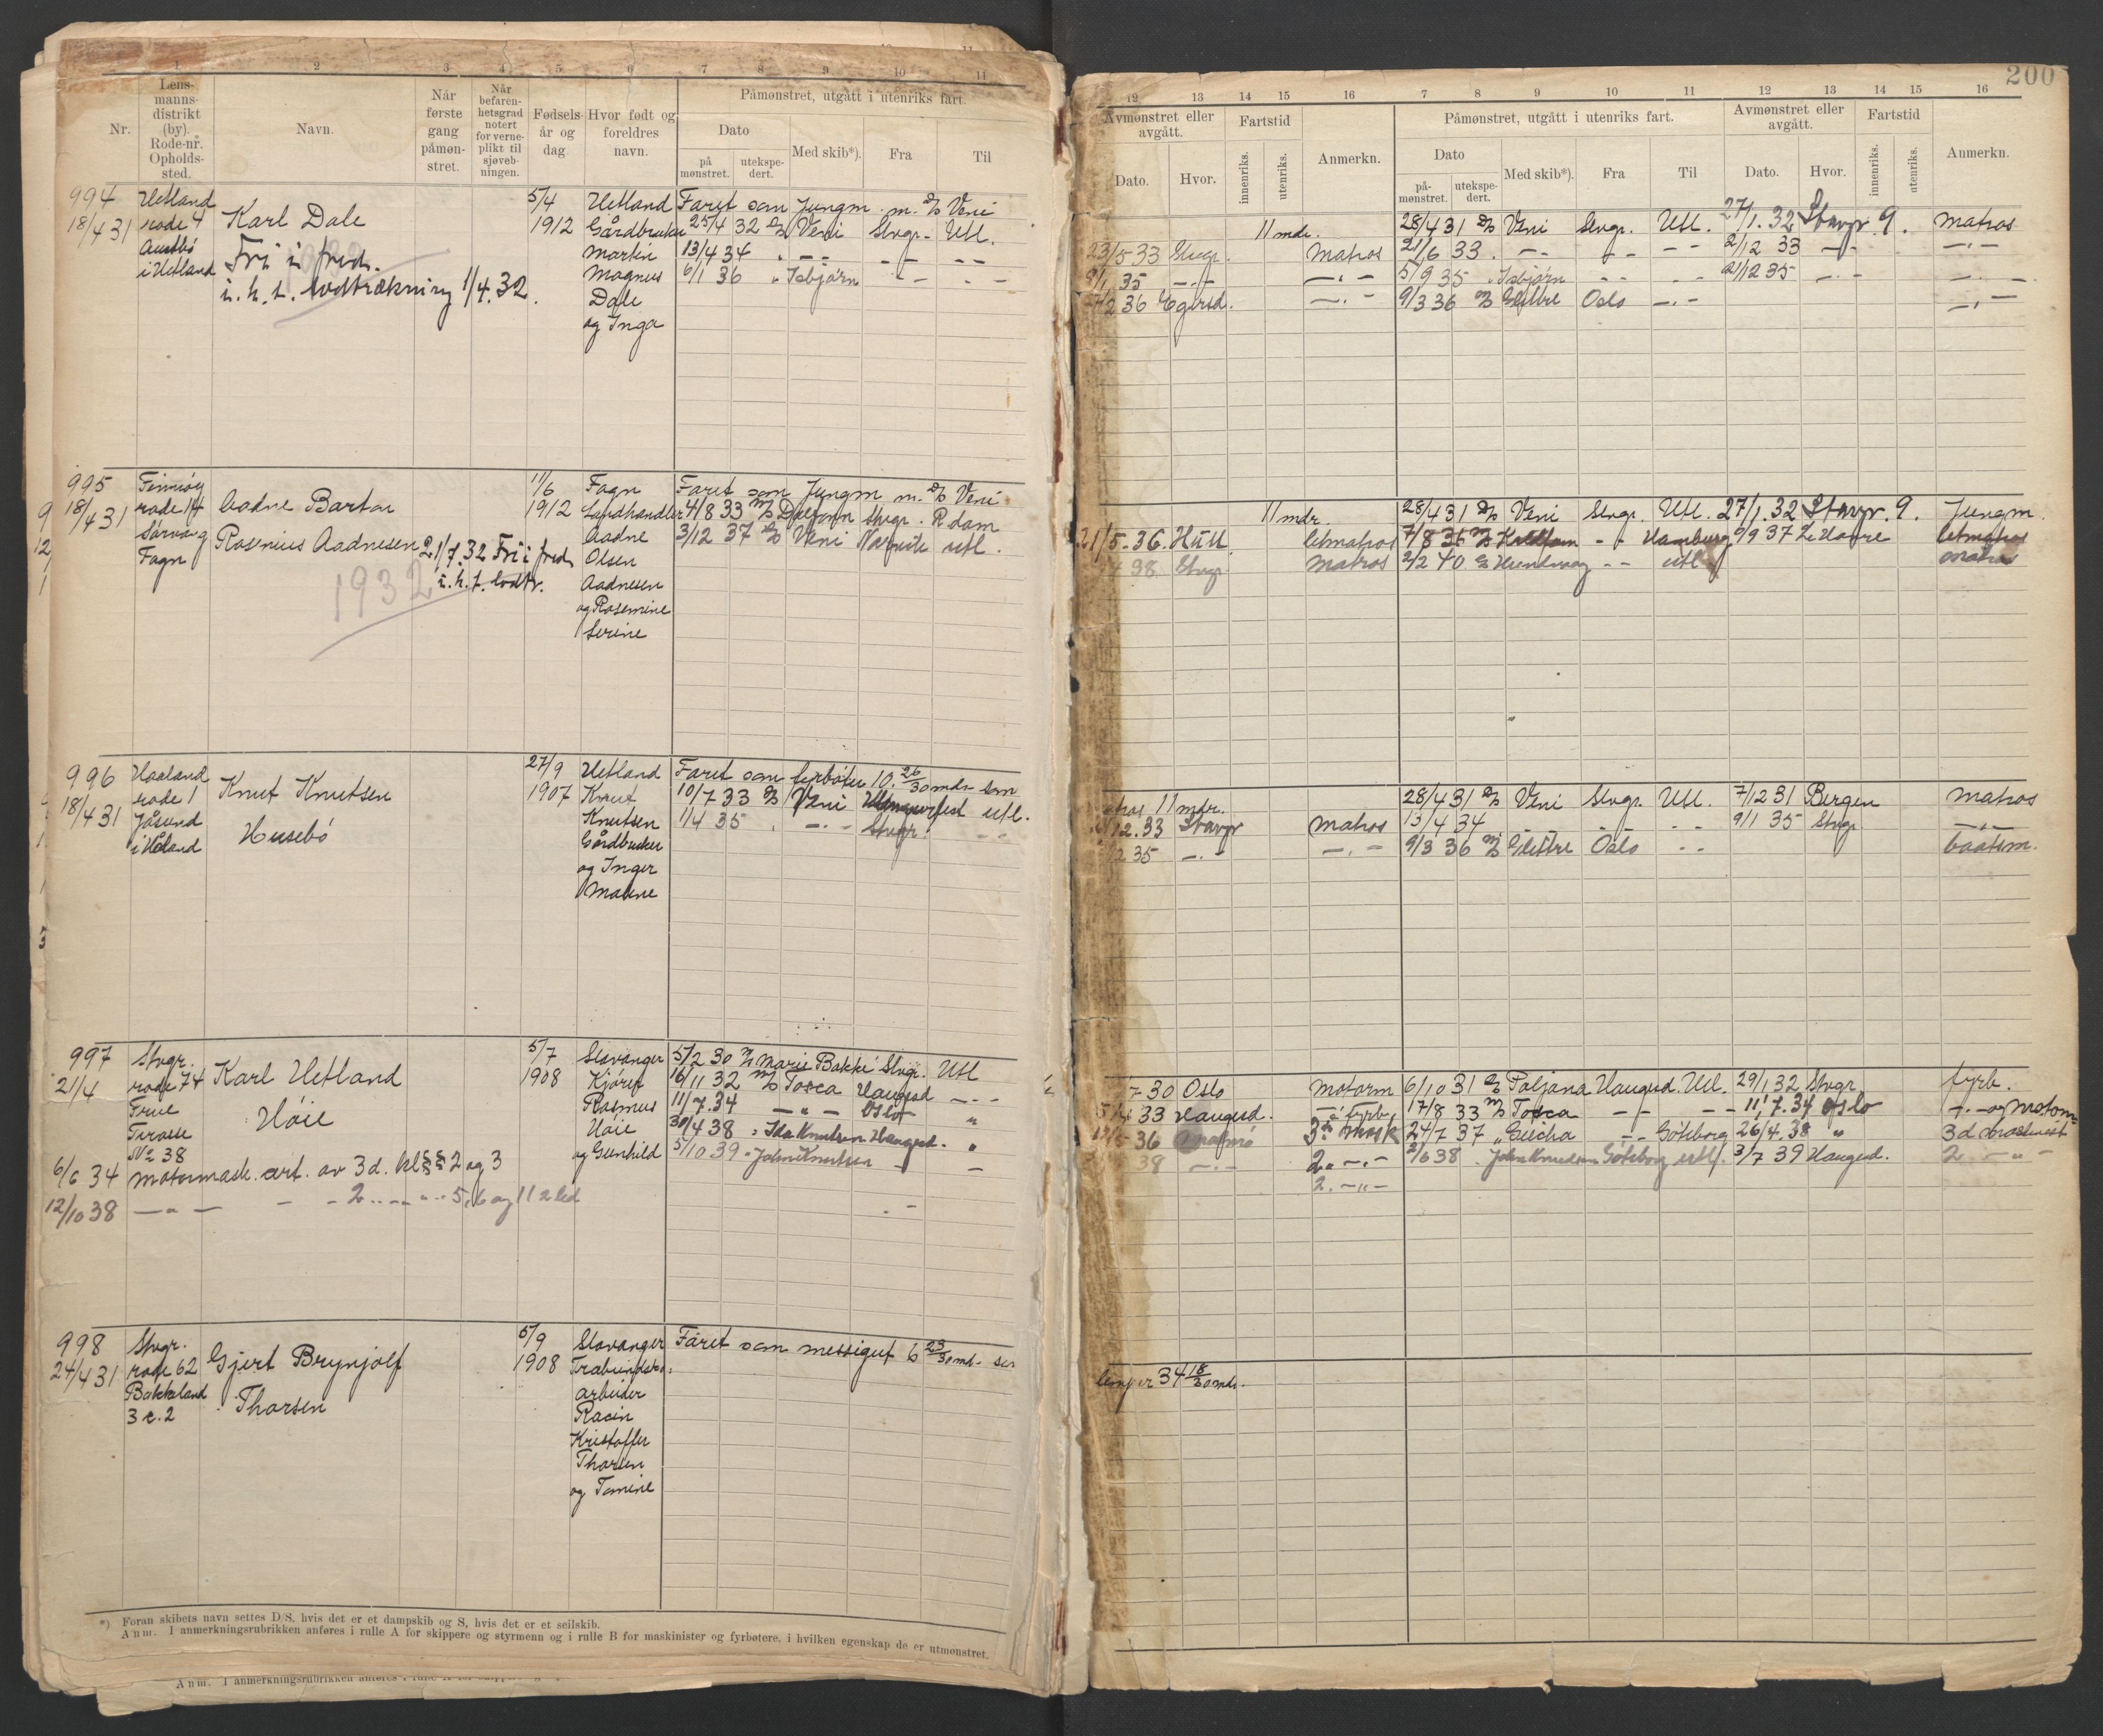 200
1 2 3 4 5 6 7 8 9 10 11
Nr.
Lens-
manns-
distrikt
(by).
Rode-nr.
Opholds-
sted.
Navn.
Når
første
gang
påmøn-
stret.
Når
befaren-
hetsgrad
notert
for verne-
plikt til
sjøveb-
ningen.
Fødsels-
år og
dag.
Hvor født og
foreldres
navn.
Påmønstret, utgått i utenriks fart.
Dato
på
mønstret.
utekspe-
dert.
Med skib*).
Fra
Til
12 13 14 15 16 7 8 9 10 11 12 13 14 15 16
Avmønstret eller
avgått.
Dato.
Hvor.
Fartstid
innenriks.
utenriks.
Anmerkn.
Påmønstret, utgått i utenriks fart.
Dato
på-
mønstret.
utekspe-
dert.
Med skib*).
Fra
Til
Avmønstret eller
avgått.
Dato.
Hvor.
Fartstid
innenriks.
utenriks.
Anmerkn.
994
18/4 31
Hetland
rode 4
Austbø
i Hetland
Karl Dale
Fri i fred.
i. h. t. lodtrækning 1/4.32.
5/4
1912
Hetland
Gårdbruker
Martin
Magnus
Dale
og Inga
Faret som Jungm. m. D/S Veni
25/4 32 D/S Veni Stvgr. - Utl.
13/4 34 - - - - - -
6/1 36 " Isbjørn - - - -
11 mdr. 28/4 31 D/S Veni Stvgr. Utl. 27/1.32 Stavgr. 9. Matros
23/5 33 Stvgr. Matros 21/6 33 - - - - - - 2/12 33 - - - . -
35 - . - - . - 5/9 35 " Isbjørn - - - - 21/12 35 - . - - . -
2 36 Egersd. - . - 9/3 36 M/S Glittre Oslo - . - - . -
995
18/4 31
Finnøy
rode 14
Sørvaag
Fogn
Aadne Barton
Rosenius Aadnesen
21/7.32 Fri i fred
i. h. t. lodtr.
1932
11/6
1912
Fogn
Landhandler
Aadne
Olsen
Aadnesen
og Rosemine
Serine
Faret som Jungm m. D/S Veni
4/8 33 M/S Dalfonn Stvgr. R.dam
3/12 37 D/S Veni utl.
11 mdr. 28/4 31 D/S Veni Stvgr. Utl. 27/1.32 Stavgr. 9. Jungm.
21/5.36. Hull letmatros 7/8 36 M/S - - Hamburg 9/9 37 Le Havre letmatros
38 Stvgr Matros 2/2 40 D/S Hundvaag - - utl matros
996
18/4 31
Haaland
rode 1
Jåsund
i Håland
Knut Knutsen
Husebø
27/9
1907
Hetland
Knut
Knutsen
Gårdbruker
og Inger
Malene
Faret som fyrbøter 10. 26/30 mdr. som
10/7 33 D/S Veni utl.
1/4 35 - . - Stvgr. - -
matros 11 mdr. 28/4 31 D/S Veni Stvgr. Utl. 7/12 31 Bergen Matros
12.33 Stavgr Matros 13/4 34 - - - - - - 9/1 35 Stvgr - . -
35 - . - - . - 9/3 36 M/S Glittre Oslo - - baatsm.
997
21/4
Stvgr.
rode 74
Frue
Terasse
No 38
Karl Hetland
Høie
5/7
1908
Stavanger
Kjører
Rasmus
Høie
og Gunhild
5/2 30 M/S Marie Bakke Stvgr. Utl
16/11 32 M/S Tosca Haugesd - . -
11/7.34 - " - Oslo "
30/4 38 " Ida Knudsen Haugesd. "
5/10 39 " John Knudsen - -
6/6 34 motormask. sert. av 3d. kl §§ 2 og 3
12/10 38 - " - - - 2 .. - .. - 5, 6 og 11 2 led
7.30 Oslo motorm 6/10 31 D/S Poljana Haugesd. Utl. 29/1 32 Stvgr. fyrb.
33 Haugesd. - " fyrb. 17/8 33 M/S Tosca - - - - 11/7.34 Oslo - . - og motorm
36 3dje mask 24/7 37 " Geisha - - Gøteborg 26/4.38 " 3d maskinist
38 - . - 2 . - . - 2/6 38 . John Knudsen Gøteborg utl. 3/7 39 Haugesd. 2 - " -
2. - " -
998
24/4 31
Stvgr.
rode 62
Bakkeland
3 e. 2
Gjert Brynjolf
Thorsen
5/9
1908
Stavanger
arbeider
Racin
Kristoffer
Thorsen
og Tomine
Faret som messigut 6 23/30 md. som
lemper 34 18/30 mdr.
*) Foran skibets navn settes D/S, hvis det er et dampskib og S, hvis det er et seilskib.
Anm. I anmerkningsrubrikken anføres i rulle A for skippere og styrmenn og i rulle B for maskinister og fyrbøtere, i hvilken egenskap de er utmønstret.
Anm. I anmerkningsrubrikken anføres i rulle A for skippere